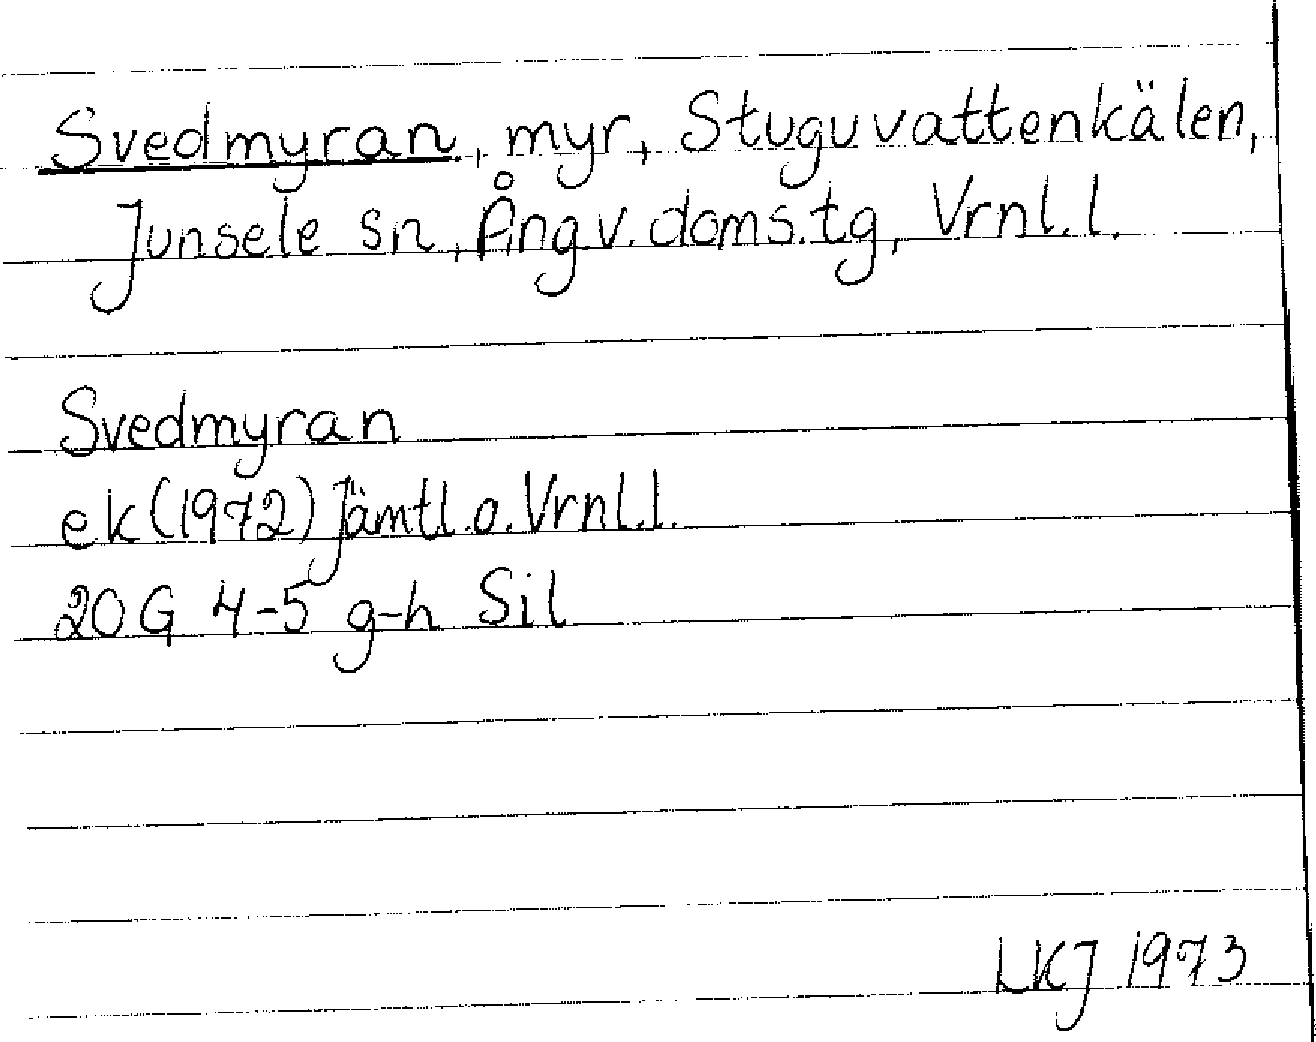 Svedmyran, myr, Stuguvattenkälen,
Junsele sn, Ångv. doms.tg, Vrnl.l.
Svedmyran
ek (1972) Jämtl.o.Vrnl.l.
20G 4-5 g-h Sil
LKJ 1973